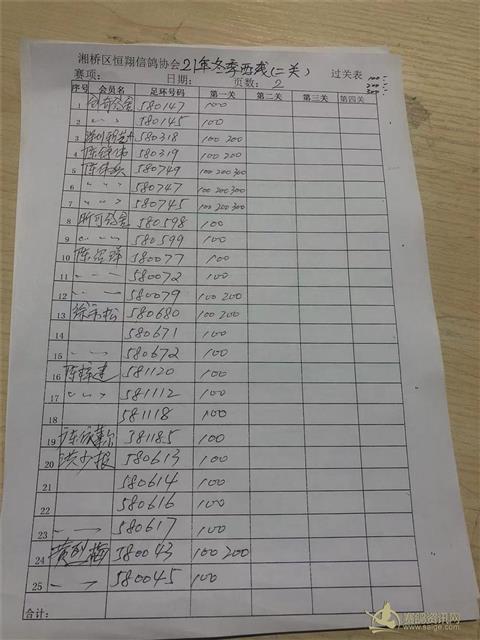 湘桥区恒翔信鸽协会21年冬季西线(二关) 过关表
赛项: 日期: 页数: 2
100
200
300
序号 会员名 足环号码 第一关 第二关 第三关 第四关
1 580147 100
2 〃 〃 580145 100
3 580318 100 200
4 580319 100 200
5 580749 100 200 300
6 〃 〃 〃 580747 100 200 300
7 〃 〃 〃 580745 100 200 300
8 昕可鸽舍 580598 100
9 〃 〃 〃 580599 100
10 580077 100
11 〃 〃 580072 100
12 〃 〃 580079 100 200
13 徐永松 580680 100 200
14 580671 100
15 〃 〃 580672 100
16 581120 100
17 〃 〃 〃 581112 100
18 581118 100
19 581185 100
20 洪少报 580613 100
21 580614 100
22 580616 100
23 580617 100
24 580043 100 200
25 580045 100
合计:
赛鸽资讯网
www.saige.com